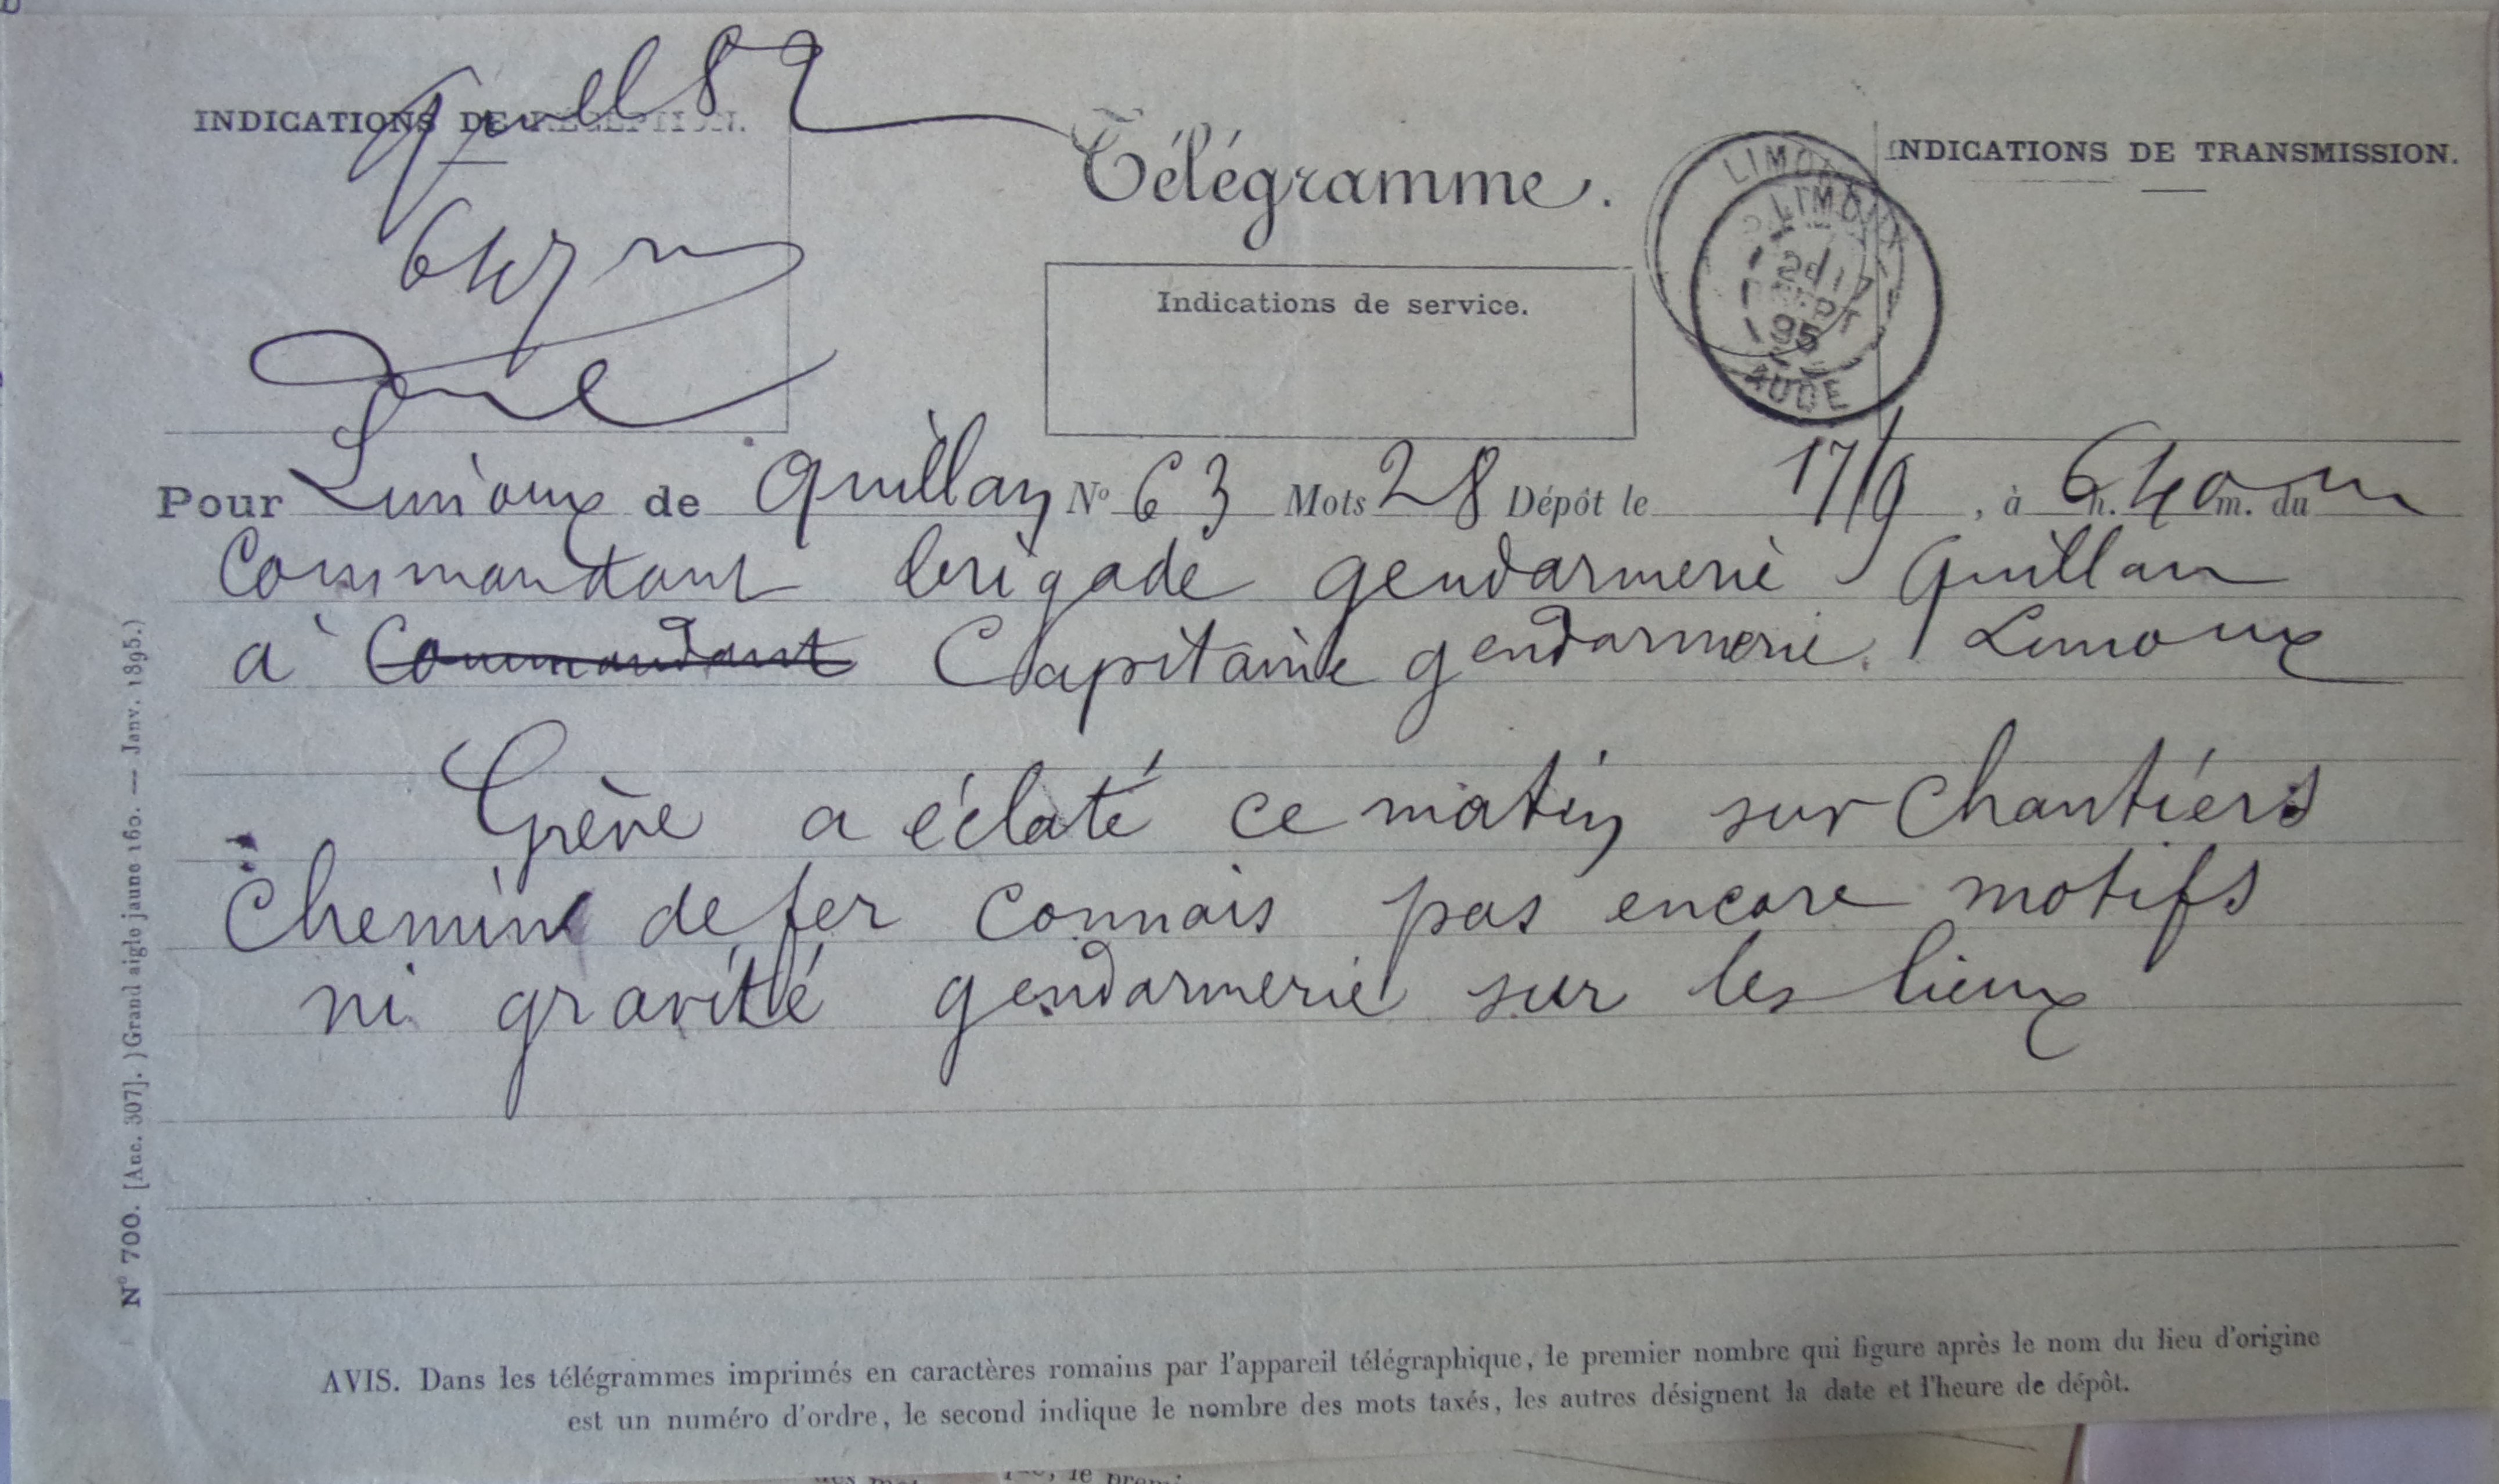 INDICATIONS DE RÉCEPTION.
82
Télégramme.
INDICATIONS DE TRANSMISSION.
Indications de service.
LIMOUX
LIMOUX
17
SEPT
95
AUDE
Pour Limoux de Quillan N° 63 Mots 28 Dépôt le 17/9, à 6 h. 40 m. du m
Commandant brigade gendarmerie Quillan
à Commandant Capitaine gendarmerie Limoux
Grève a éclaté ce matin sur chantiers
chemin de fer connais pas encore motifs
ni gravité gendarmerie sur les lieux
N° 700. [Anc. 307]. ) Grand aigle jaune 160. — Janv. 1895.)
AVIS. Dans les télégrammes imprimés en caractères romains par l'appareil télégraphique, le premier nombre qui figure après le nom du lieu d'origine
est un numéro d'ordre, le second indique le nombre des mots taxés, les autres désignent la date et l'heure de dépôt.